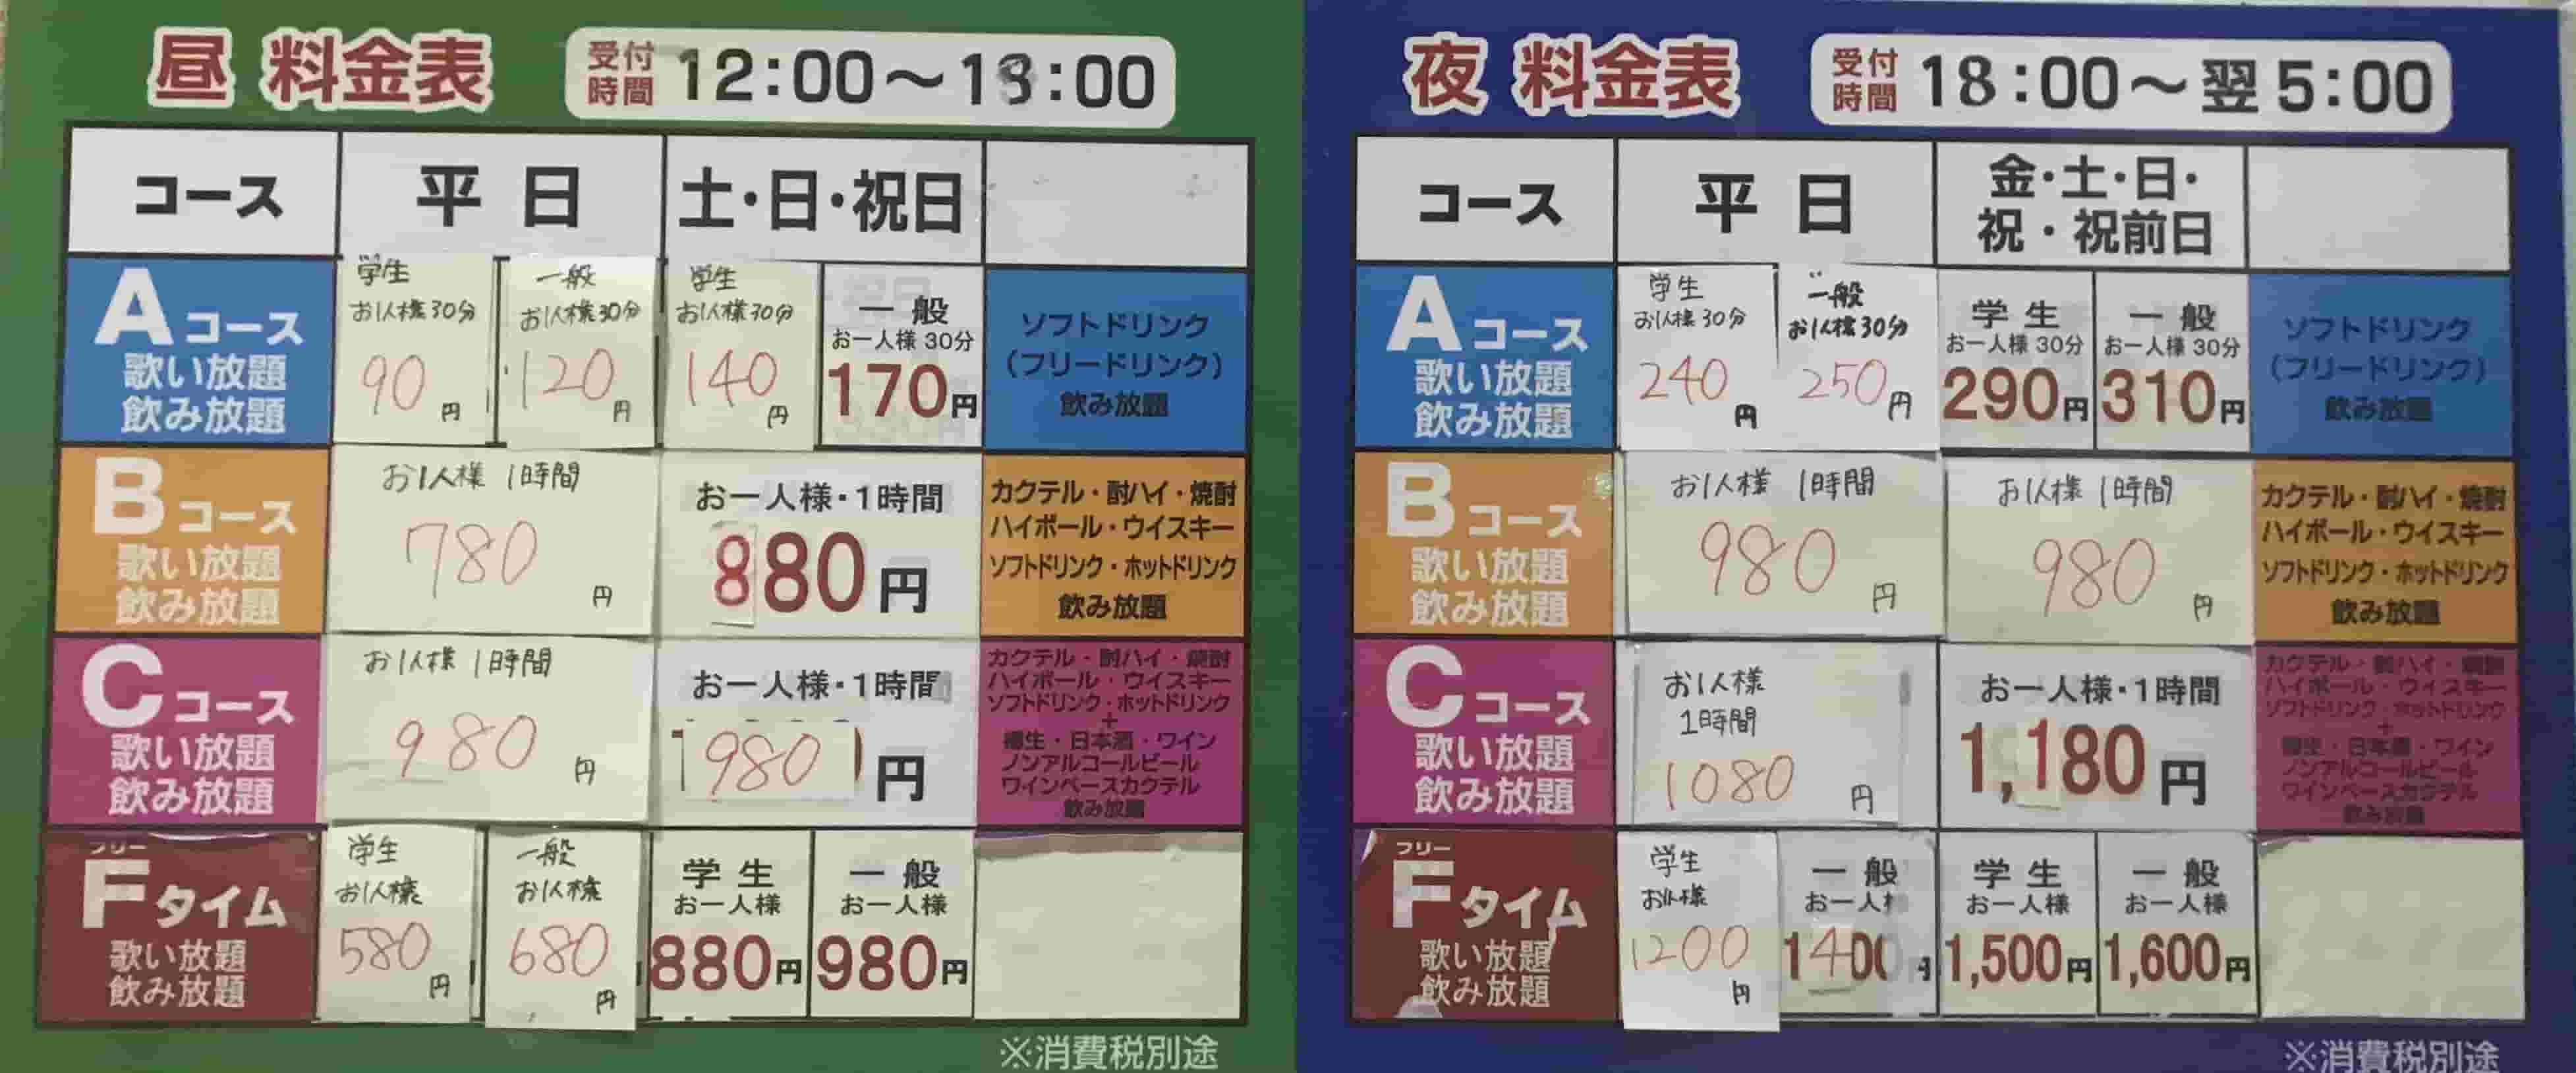 昼 料金表
受付時間 12:00～18:00
コース 平日 土・日・祝日
Aコース
歌い放題
飲み放題
学生
お1人様30分
90円
一般
お1人様30分
120円
学生
お1人様30分
140円
一般
お一人様30分
170円
ソフトドリンク
(フリードリンク)
飲み放題
Bコース
歌い放題
飲み放題
お1人様 1時間
780円
お一人様・1時間
880円
カクテル・酎ハイ・焼酎
ハイボール・ウイスキー
ソフトドリンク・ホットドリンク
飲み放題
Cコース
歌い放題
飲み放題
お1人様 1時間
980円
お一人様・1時間
980円
カクテル・酎ハイ・焼酎
ハイボール・ウイスキー
ソフトドリンク・ホットドリンク
+
樽生・日本酒・ワイン
ノンアルコールビール
ワインベースカクテル
飲み放題
フリー
Fタイム
歌い放題
飲み放題
学生
お1人様
580円
一般
お1人様
680円
学生
お一人様
880円
一般
お一人様
980円
※消費税別途
夜 料金表
受付時間 18:00～翌5:00
コース 平日 金・土・日・
祝・祝前日
Aコース
歌い放題
飲み放題
学生
お1人様30分
240円
一般
お1人様30分
250円
学生
お一人様30分
290円
一般
お一人様30分
310円
ソフトドリンク
(フリードリンク)
飲み放題
Bコース
歌い放題
飲み放題
お1人様 1時間
980円
お1人様 1時間
980円
カクテル・酎ハイ・焼酎
ハイボール・ウイスキー
ソフトドリンク・ホットドリンク
飲み放題
Cコース
歌い放題
飲み放題
お1人様
1時間
1080円
お一人様・1時間
1,180円
カクテル・酎ハイ・焼酎
ハイボール・ウイスキー
ソフトドリンク・ホットドリンク
+
樽生・日本酒・ワイン
ノンアルコールビール
ワインベースカクテル
飲み放題
フリー
Fタイム
歌い放題
飲み放題
学生
お1人様
1200円
一般
お一人様
1400円
学生
お一人様
1,500円
一般
お一人様
1,600円
※消費税別途